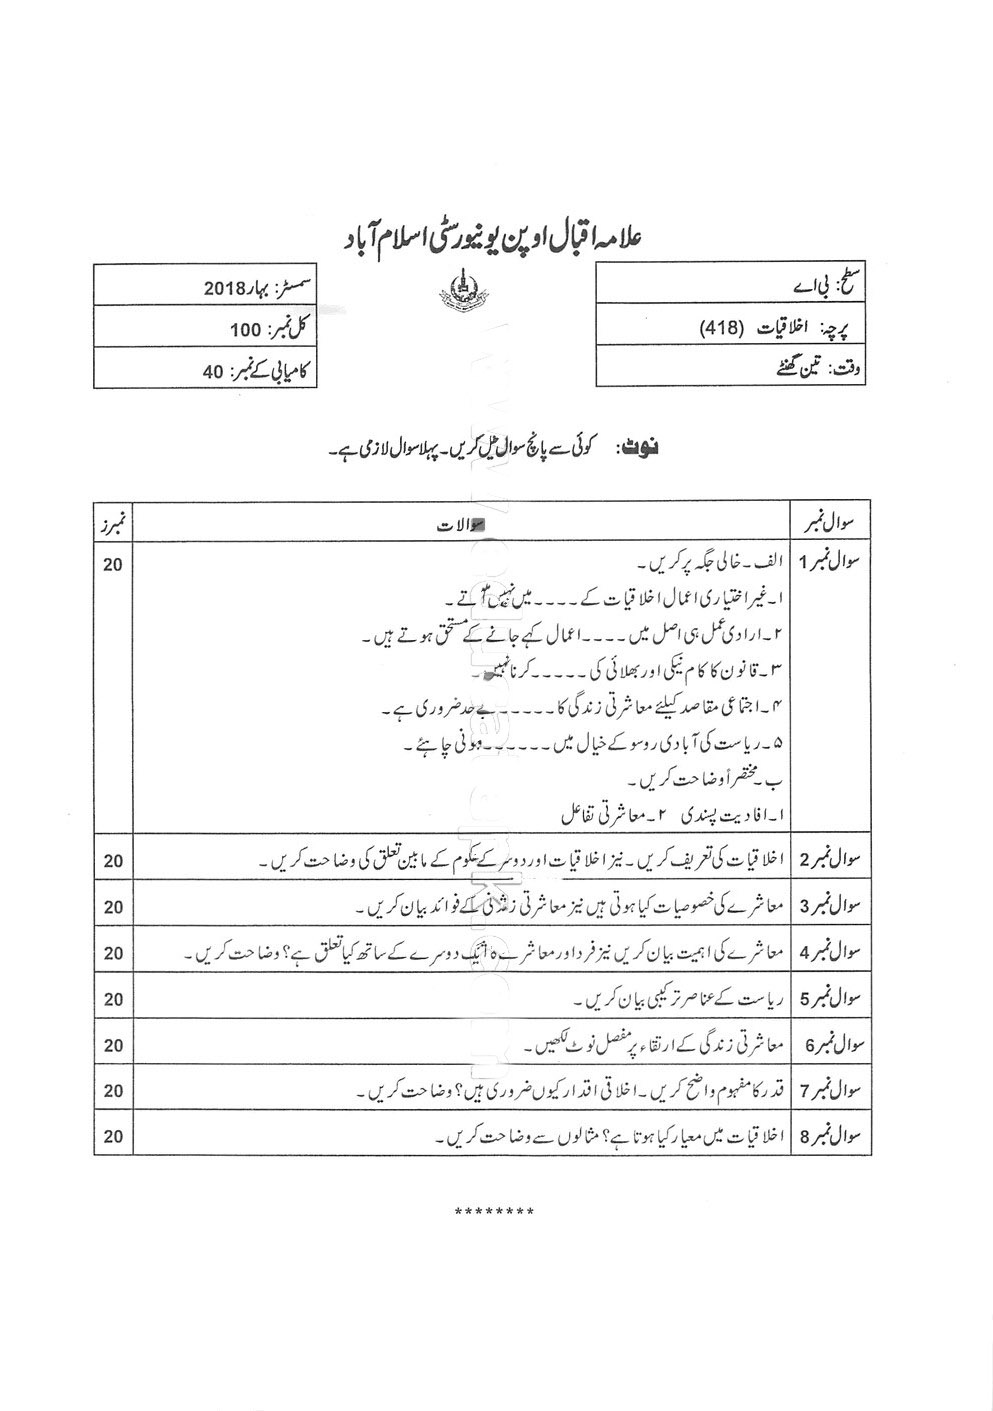 علامہ اقبال اوپن یونیورسٹی اسلام آباد
سطح: بی اے
سمسٹر: بہار 2018
پرچہ: اخلاقیات (418)
کل نمبر: 100
وقت: تین گھنٹے
کامیابی کے نمبر: 40
نوٹ: کوئی سے پانچ سوال حل کریں۔ پہلا سوال لازمی ہے۔
سوال نمبر سوالات نمبرز
سوال نمبر 1 الف۔ خالی جگہ پر کریں۔ 20
۱۔ غیر اختیاری اعمال اخلاقیات کے ۔۔۔۔ میں نہیں آتے۔
۲۔ ارادی عمل ہی اصل میں ۔۔۔۔ اعمال کہے جانے کے مستحق ہوتے ہیں۔
۳۔ قانون کا کام نیکی اور بھلائی کی ۔۔۔۔۔ کرنا نہیں۔
۴۔ اجتماعی مقاصد کیلئے معاشرتی زندگی کا ۔۔۔۔۔ بے حد ضروری ہے۔
۵۔ ریاست کی آبادی روسو کے خیال میں ۔۔۔۔۔۔ ہونی چاہئے۔
ب۔ مختصراً وضاحت کریں۔
۱۔ افادیت پسندی ۲۔ معاشرتی تفاعل
سوال نمبر 2 اخلاقیات کی تعریف کریں۔ نیز اخلاقیات اور دوسرے علوم کے مابین تعلق کی وضاحت کریں۔ 20
سوال نمبر 3 معاشرے کی خصوصیات کیا ہوتی ہیں نیز معاشرتی زندگی کے فوائد بیان کریں۔ 20
سوال نمبر 4 معاشرے کی اہمیت بیان کریں نیز فرد اور معاشرے کا ایک دوسرے کے ساتھ کیا تعلق ہے؟ وضاحت کریں۔ 20
سوال نمبر 5 ریاست کے عناصر ترکیبی بیان کریں۔ 20
سوال نمبر 6 معاشرتی زندگی کے ارتقاء پر مفصل نوٹ لکھیں۔ 20
سوال نمبر 7 قدر کا مفہوم واضح کریں۔ اخلاقی اقدار کیوں ضروری ہیں؟ وضاحت کریں۔ 20
سوال نمبر 8 اخلاقیات میں معیار کیا ہوتا ہے؟ مثالوں سے وضاحت کریں۔ 20
********